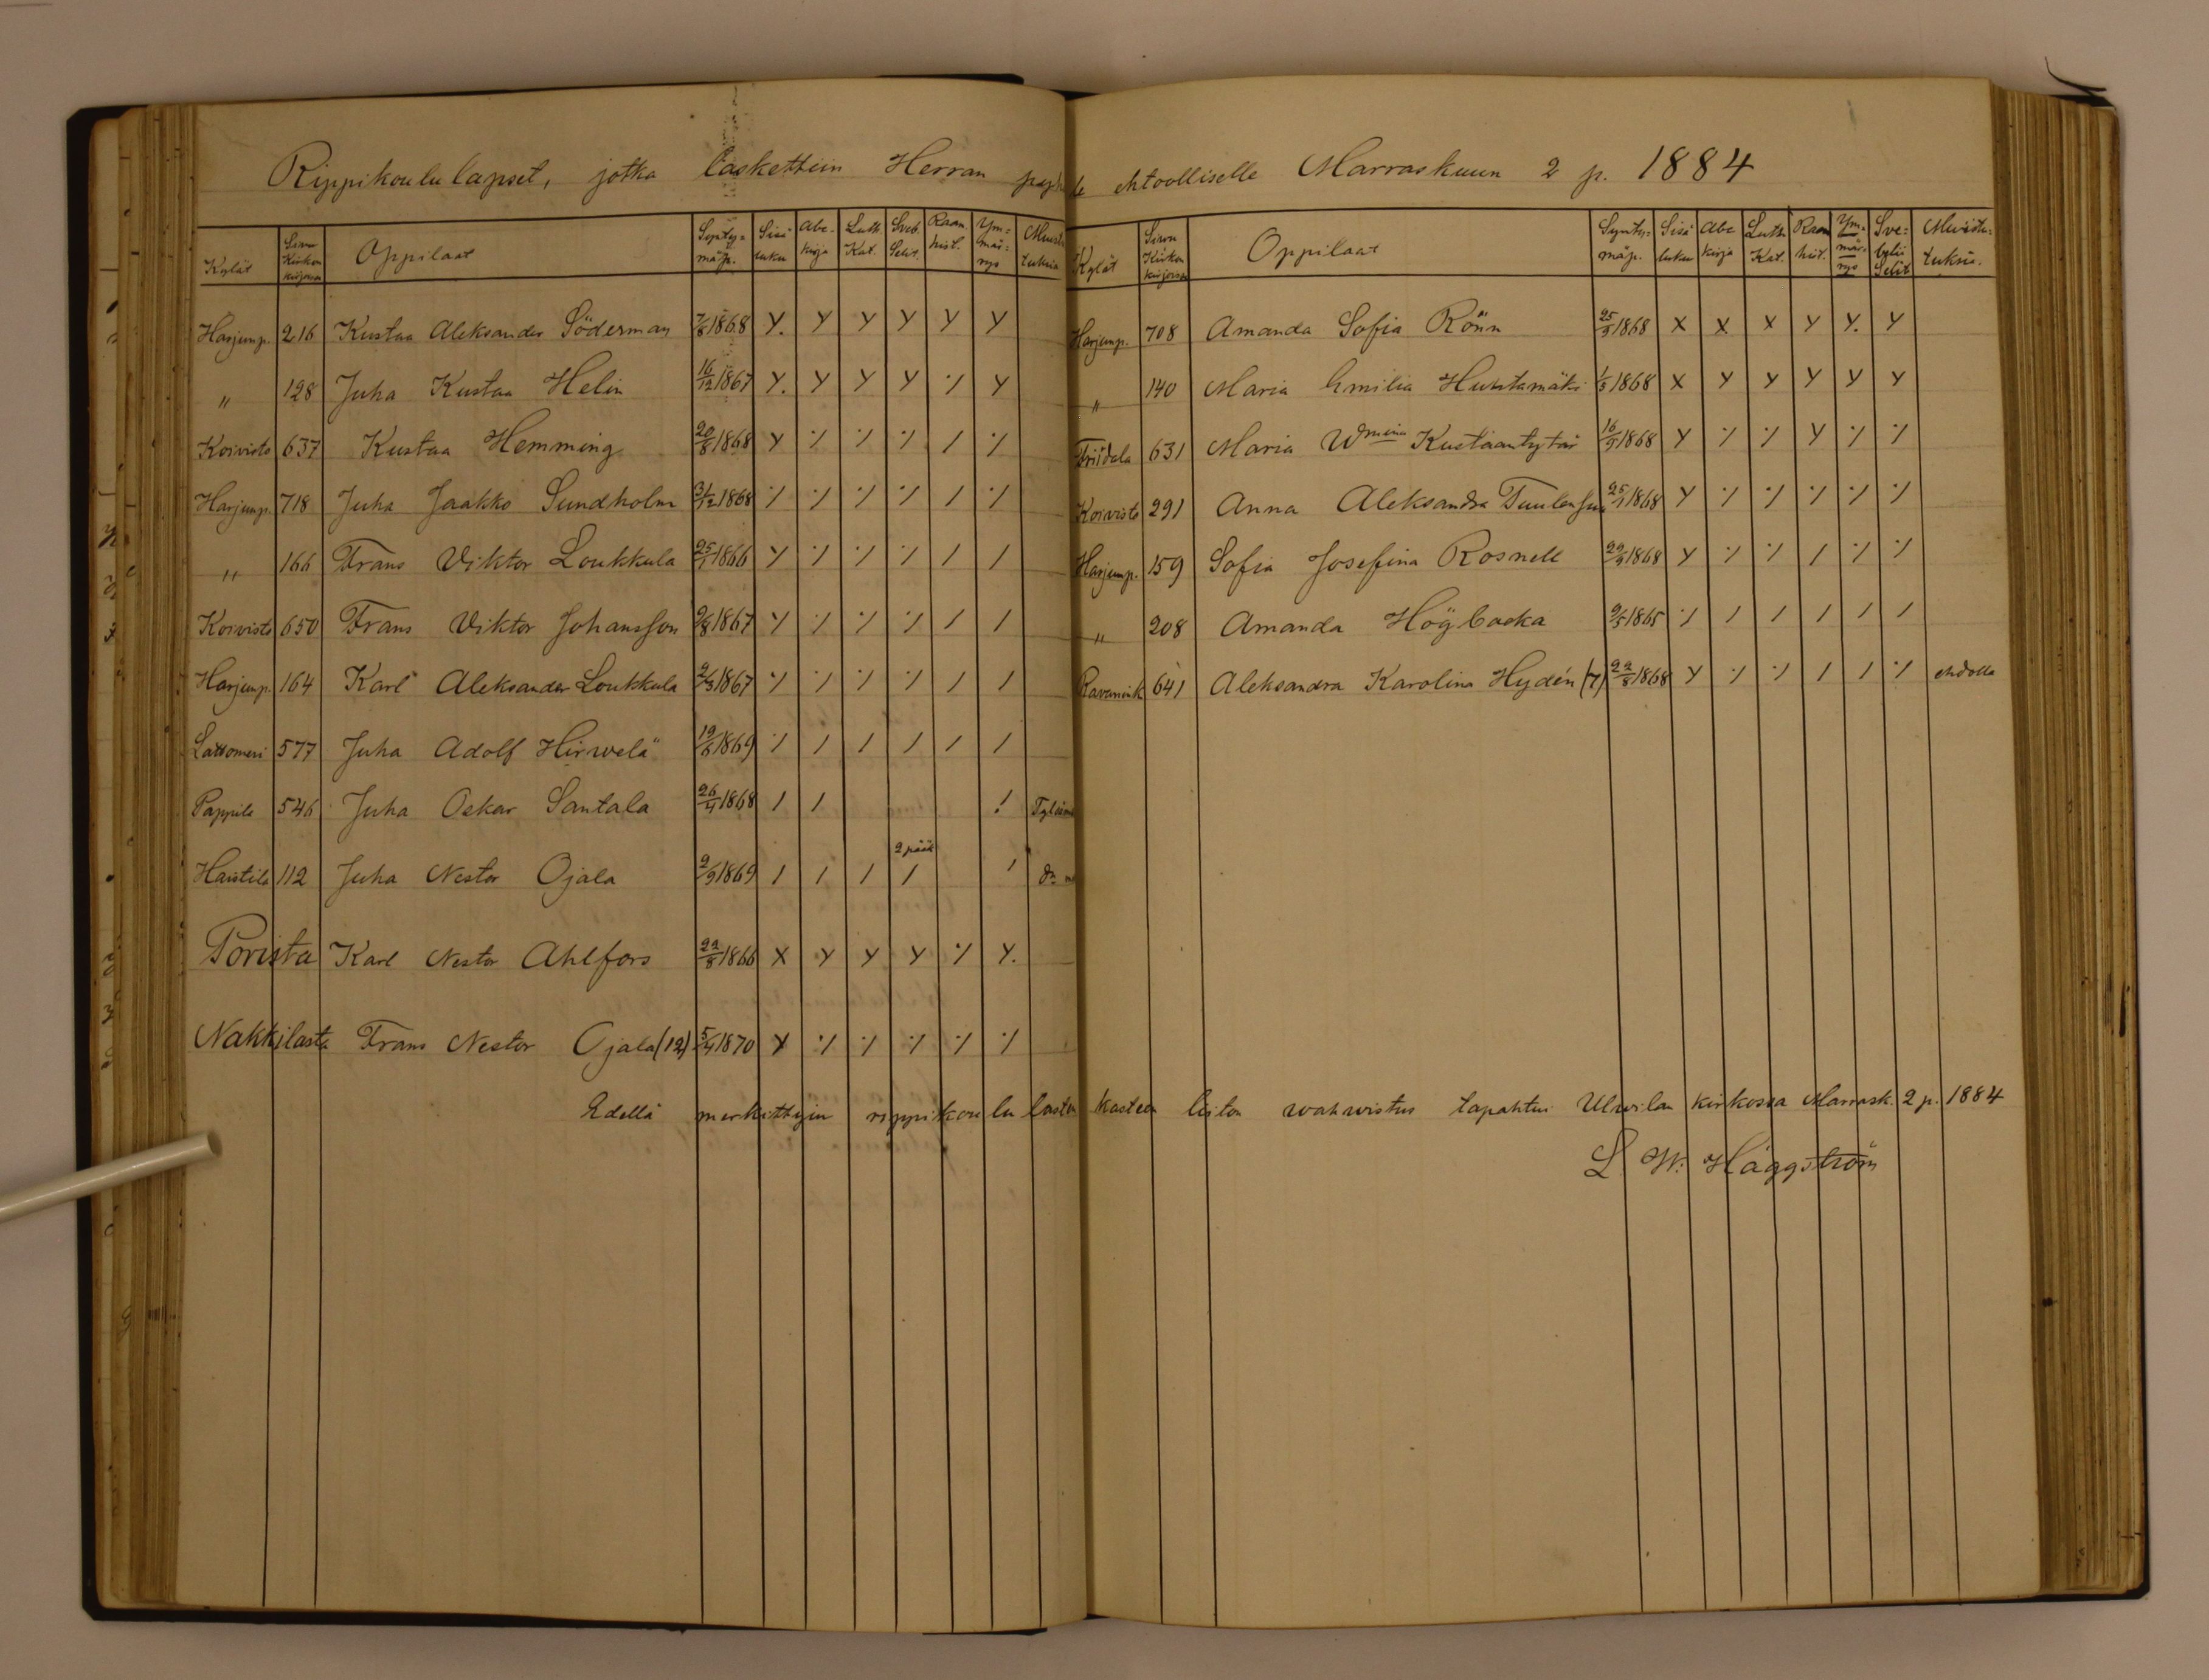 Rippikoulu lapset, jotka laskettiin Herran pyhälle ehtoolliselle Marraskuun 2 p. 1884
Kylät Sivu Kirkon kirjassa Oppilaat Synty=mäp. Sisä luku Abc-kirja Luth. Kat. Sveb. Selit. Raam. hist. Ym=mär=rys Muistutuksia
Harjunp. 216 Kustaa Aleksander Söderman 7/8 1868 Y. Y Y Y Y Y
" 128 Juha Kustaa Helin 16/12 1867 Y. Y Y Y ·/ Y
Koivisto 637 Kustaa Hemming 20/8 1868 Y ·/ ·/ ·/ / ·/
Harjunp. 718 Juha Jaakko Sundholm 31/12 1868 ·/ ·/ ·/ ·/ / ·/
" 166 Frans Viktor Loukkula 25/1 1866 Y ·/ ·/ ·/ / /
Koivisto 650 Frans Viktor Johansson 9/8 1867 Y ·/ ·/ ·/ / /
Harjunp. 164 Karl Aleksander Loukkula 2/3 1867 ·/ ·/ ·/ ·/ / /
Lattomeri 577 Juha Adolf Hirwelä 19/6 1869 ·/ / / / / /
Pappila 546 Juha Oskar Santala 26/4 1868 / / !
2 pää
Haistila 112 Juha Nestor Ojala 2/9 1869 / / / / /
Porista Karl Nestor Ahlfors 22/8 1866 X Y Y Y ·/ Y.
Nakkilasta Frans Nestor Ojala (12) 5/4 1870 Y ·/ ·/ ·/ ·/ ·/
Kylät Sivu Kirkon kirjassa Oppilaat Synty=mäp. Sisä luku Abc kirja Luth. Kat. Raam hist. Ym=mär=rys Sve=bylii Selit Muistu=tuksia.
Harjunp. 708 Amanda Sofia Rönn 25/5 1868 X X X Y Y. Y
" 140 Maria Emilia Huhtamäki 1/3 1868 X Y Y Y Y Y
Friidala 631 Maria Wmina Kustaantytär 16/9 1868 Y ·/ ·/ Y ·/ ·/
Koivisto 291 Anna Aleksandra Tuulensuu 25/1 1868 Y ·/ ·/ ·/ ·/ ·/
Harjunp. 159 Sofia Josefina Rosnell 29/9 1868 Y ·/ ·/ / ·/ ·/
" 208 Amanda Högbacka 9/5 1865 ·/ / / / / /
Ravanink 641 Aleksandra Karolina Hydén (7) 22/8 1868 Y ·/ ·/ / / ·/ ehdolla
Edellä merkittyin rippikoulu lasten kasteen liiton wahwistus tapahtui Ulwilan kirkossa Marrask. 2 p. 1884
L. W. Häggström